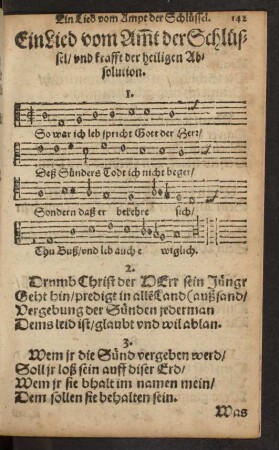 Ein Lied vom Ampt der Schlüssel. 142
Ein Lied vom Am̃t der Schlüs-
sel/ vnd krafft der heiligen Ab-
solution.
1.
So war ich leb spricht Gott der Herr/
Deß Sünders Todt ich nicht beger/
Sondern daß er bekehre sich/
Thu Buß/ vnd leb auch e wiglich.
2.
Drumb Christ der HErr sein Jüngr
Geht hin/ predigt in allē Land (außsand/
Vergebung der Sünden jederman
Dems leid ist/ glaubt vnd wil ablan.
3.
Wem jr die Sünd vergeben werd/
Soll jr loß sein auff diser Erd/
Wem jr sie bhalt im namen mein/
Dem sollen sie behalten sein.
Was